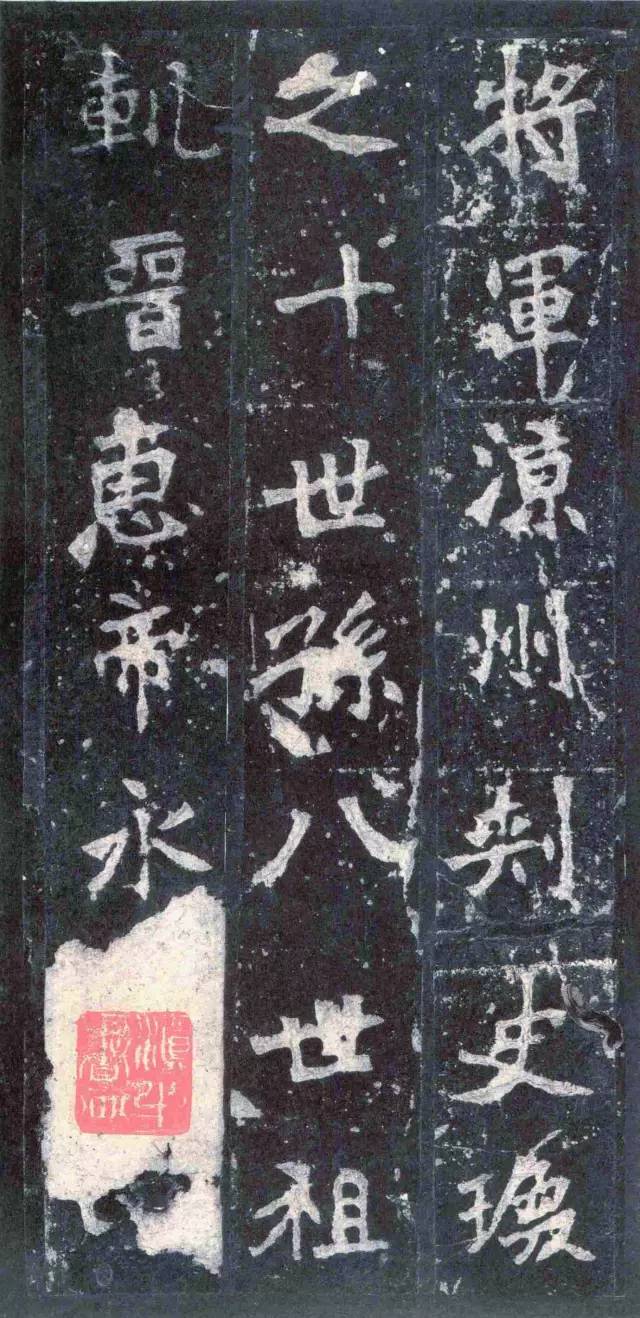 將軍涼州刾史瑍
之十世孫八世祖
軌晉惠帝永